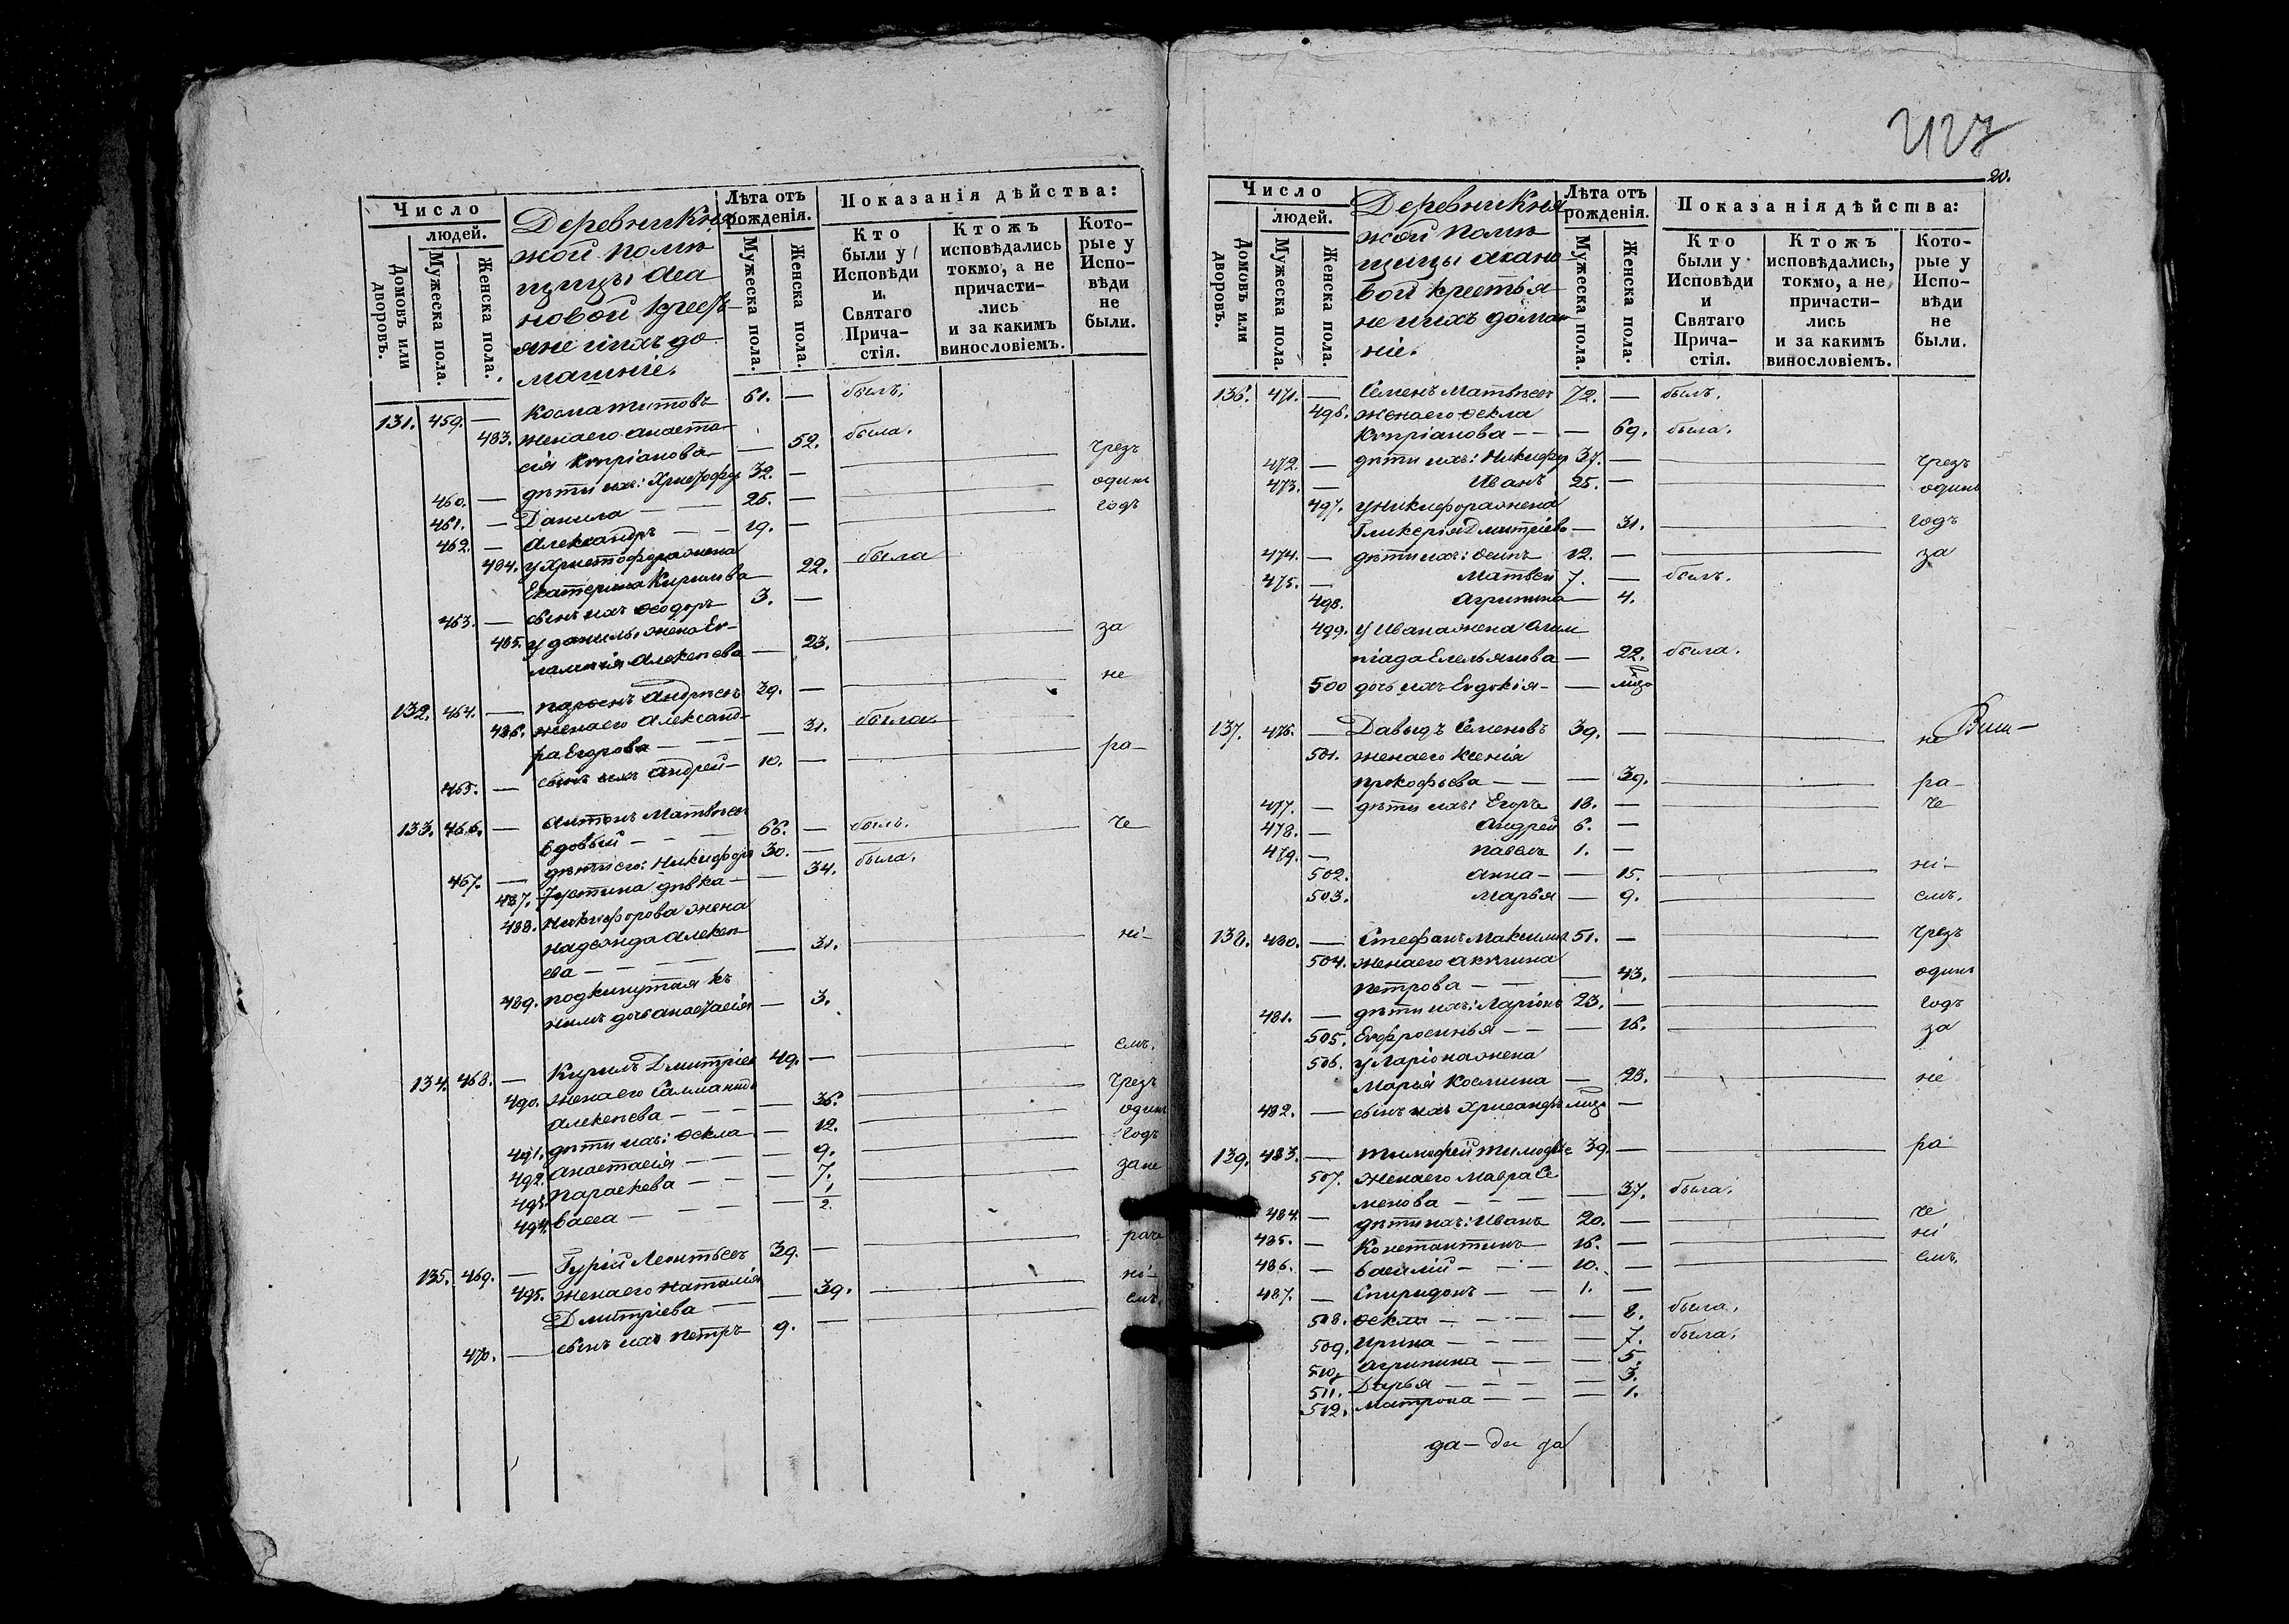 Число
людей.
Домовъ или дворовъ.
Мужеска пола.
Женска пола.
Деревни Кня
жой поме
щицы Аха
новой крестья
яне и ихъ до
машніе.
Лѣта отъ рожденія.
Мужеска пола.
Женска пола.
Показанія дѣйства:
Кто были у Исповѣди и Святаго Причастія.
Ктожъ исповѣдались токмо, а не причастились и за какимъ винословіемъ.
Которые у Исповѣди не были.
131. 459. — Косма Титовъ 61. — былъ.
483. жена его Анаста-
сія Купріанова — — 52. была.
460. — дѣти ихъ: Христофоръ 32. — чрезъ
461. — Данила — — 25. — одинъ
462. — Александръ — — 19. — годъ
484. у Христофора жена
Екатерина Кирилова 22. была
463. — сынъ ихъ Ѳеодоръ 3. —
485. у Данилы жена Ев-
лампія Алексѣева — 23. за
132. 464. — Парѳенъ Андреевъ 39. — не
486. жена его Александ-
ра Егорова — — 31. была.
465. — сынъ ихъ Андрей — 10. — ра-
133. 466. — Антонъ Матвѣевъ
вдовый — — 66. — былъ.
467. — дѣти его: Никифоръ 30. — че
487. Іустина дѣвка — — 34. была.
488. Никифорова жена
Надежда Алексѣ-
ева — — — 31. ні-
489. подкинутая къ
нимъ дочь Анастасія — 3.
134. 468. — Кирилъ Дмитріев 49. — емъ.
490. жена его Саламанида
Алексѣева — — — 36. чрезъ
491. дѣти ихъ: Ѳекла — 12. одинъ
492. Анастасія — — — 9. годъ
493. Параскева — — — 7. за не
494. Васса — — — — 1/2.
135. 469. — Гурій Леонтьевъ 39. — раче
495. жена его Наталія
Дмитріева — — — 39. ні-
470. — сынъ ихъ Петръ 9. — емъ.
427
20.
Число
людей.
Домовъ или дворовъ.
Мужеска пола.
Женска пола.
Деревни Кня
жой поме
щицы Ахано
вой крестья
не и ихъ домаш
ніе.
Лѣта отъ рожденія.
Мужеска пола.
Женска пола.
Показанія дѣйства:
Кто были у Исповѣди и Святаго Причастія.
Ктожъ исповѣдались, токмо, а не причастились и за какимъ винословіемъ.
Которые у Исповѣди не были.
136. 471. — Семенъ Матвѣевъ 72. — былъ.
496. жена его Ѳекла
Купріанова — — — 69. была.
472. — дѣти ихъ: Никифор 37. — чрезъ
473. — Иванъ 25. — одинъ
497. у Никифора жена
Гликерія Дмитріева — 31. годъ
474. — дѣти ихъ: Осипъ 12. — за
475. — Матвей 7. — былъ.
498. Агрипина — 4.
499. у Ивана жена Олим
піада Емельянова — 22. была.
500 дочь ихъ Евдокія — —
137. 476. — Давыдъ Семеновъ 39. — не
501. жена его Ксенія
Прокофьева — — — 39. ра-
477. — дѣти ихъ: Егоръ 18. — че
478. — Андрей 6. —
479. — Павелъ 1. —
502. Анна — — 15. ні-
503. Марья — 9. емъ.
138. 480. — Стефанъ Максимов 51. — чрезъ
504. жена его Акулина
Петрова — — — 43. одинъ
481. — дѣти ихъ: Ларіонъ 23. — годъ
505. Евфросинья — — — 16. за
506. у Ларіона жена
Марья Космина — 23. не
482. — сынъ ихъ Хрисанфъ —
139. 483. — Тимофей Тимофѣе 39. — ра
507. жена его Мавра Се
менова — — — 37. была.
484. — дѣти ихъ: Иванъ 20. — че
485. — Константинъ 16. — ні
486. — Василій — — 10. — емъ.
487. — Спиридонъ — — 1. —
508. Ѳекла — — — 8. была.
509. Ирина — — — 7. была.
510. Агрипина — — — 5.
511. Дарья — — — 3.
512. Матрона — — — 1.